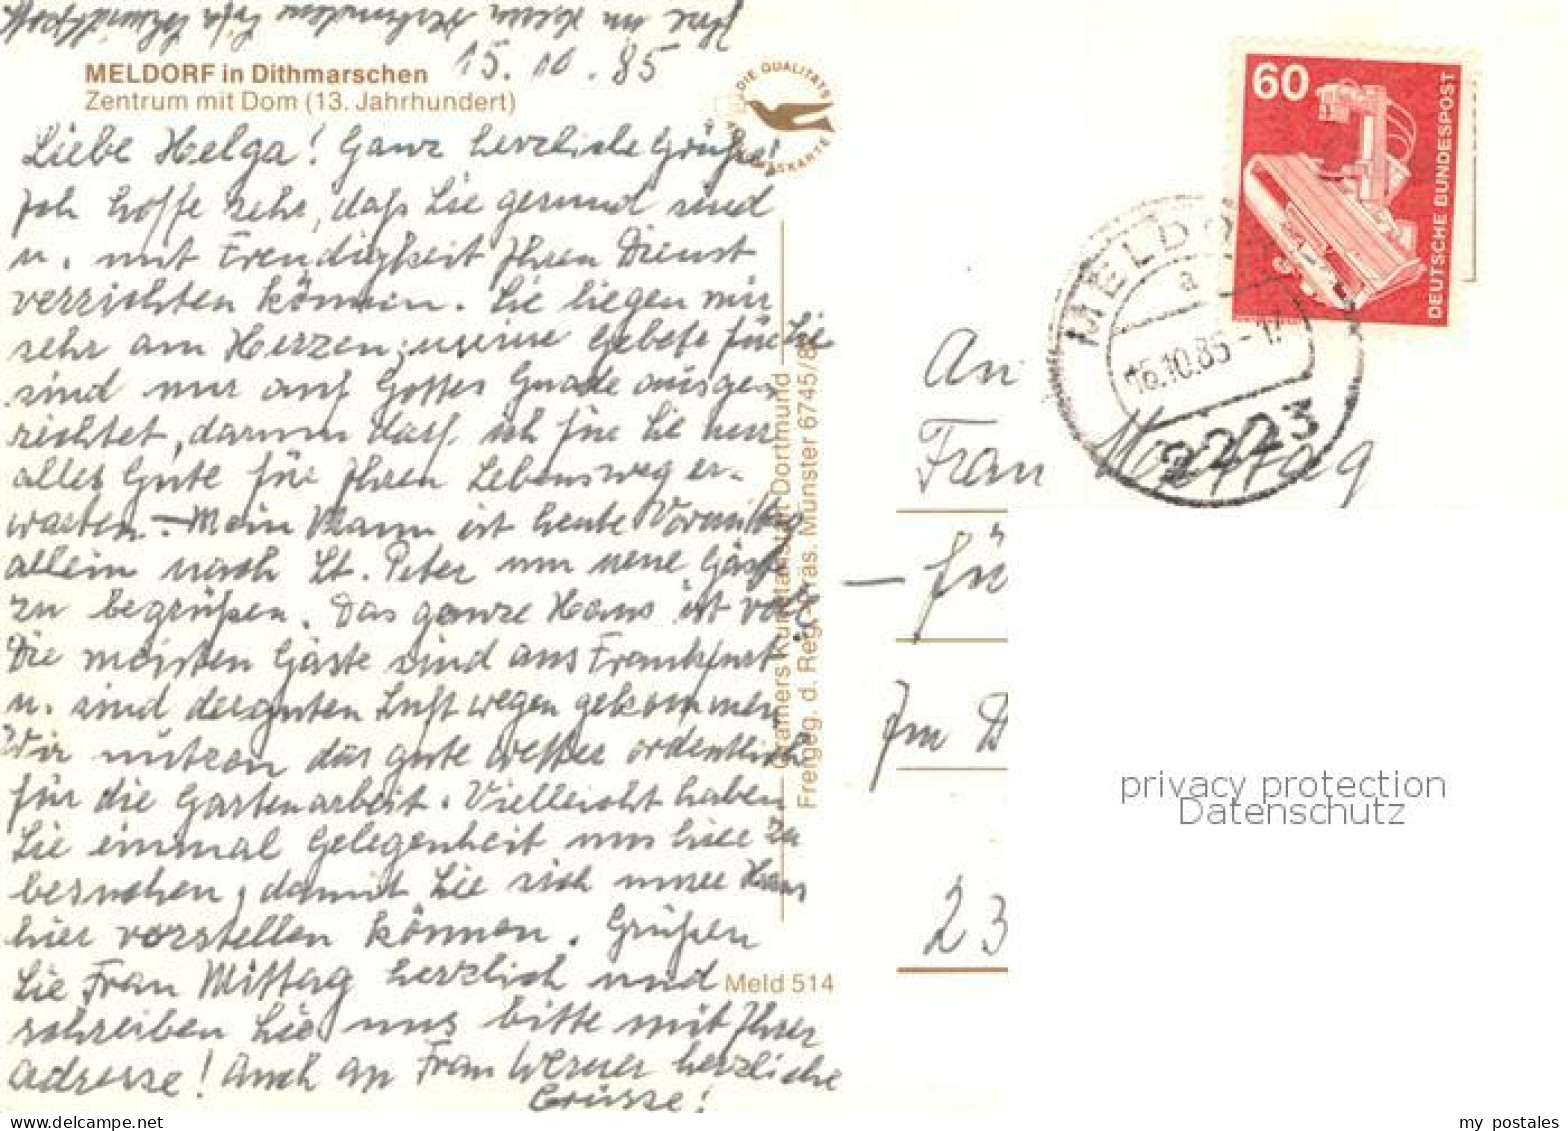 15.10.85
MELDORF in Dithmarschen
Zentrum mit Dom (13. Jahrhundert)
DIE QUALITÄTS
Liebe Helga! Ganz herzliche Grüße!
Ich hoffe sehr, daß Sie gesund sind
u. mit Freudigkeit Ihren Dienst
verrichten können. Sie liegen mir
sehr am Herzen, meine Gebete für Sie
sind nur auf Gottes Gnade ausge-
richtet, darum darf ich für Sie nur
alles Gute für Ihren Lebensweg er-
warten. – Mein Mann ist heute Vormittag
allein nach St. Peter um neue Gäste
zu begrüßen. Das ganze Haus ist voll.
Die meisten Gäste sind aus Frankfurt
u. sind der guten Luft wegen gekommen
Wir nutzen das gute Wetter ordentlich
für die Gartenarbeit. Vielleicht haben
Sie einmal Gelegenheit uns hier zu
besuchen, damit Sie sich unser Haus
hier vorstellen können. Grüßen
Sie Frau Mittag herzlich und
schreiben Sie uns bitte mit Ihrer
Adresse! Auch an Frau Werner herzliche
Grüsse!
Cramers Kunstanstalt Dortmund
Freigeg. d. Reg. Präs. Münster 6745/8
Meld 514
60
DEUTSCHE BUNDESPOST
MELDO
a
16.10.85-17
2223
An
Frau
– fü
Im D
23
privacy protection
Datenschutz
www.delcampe.net
my_postales